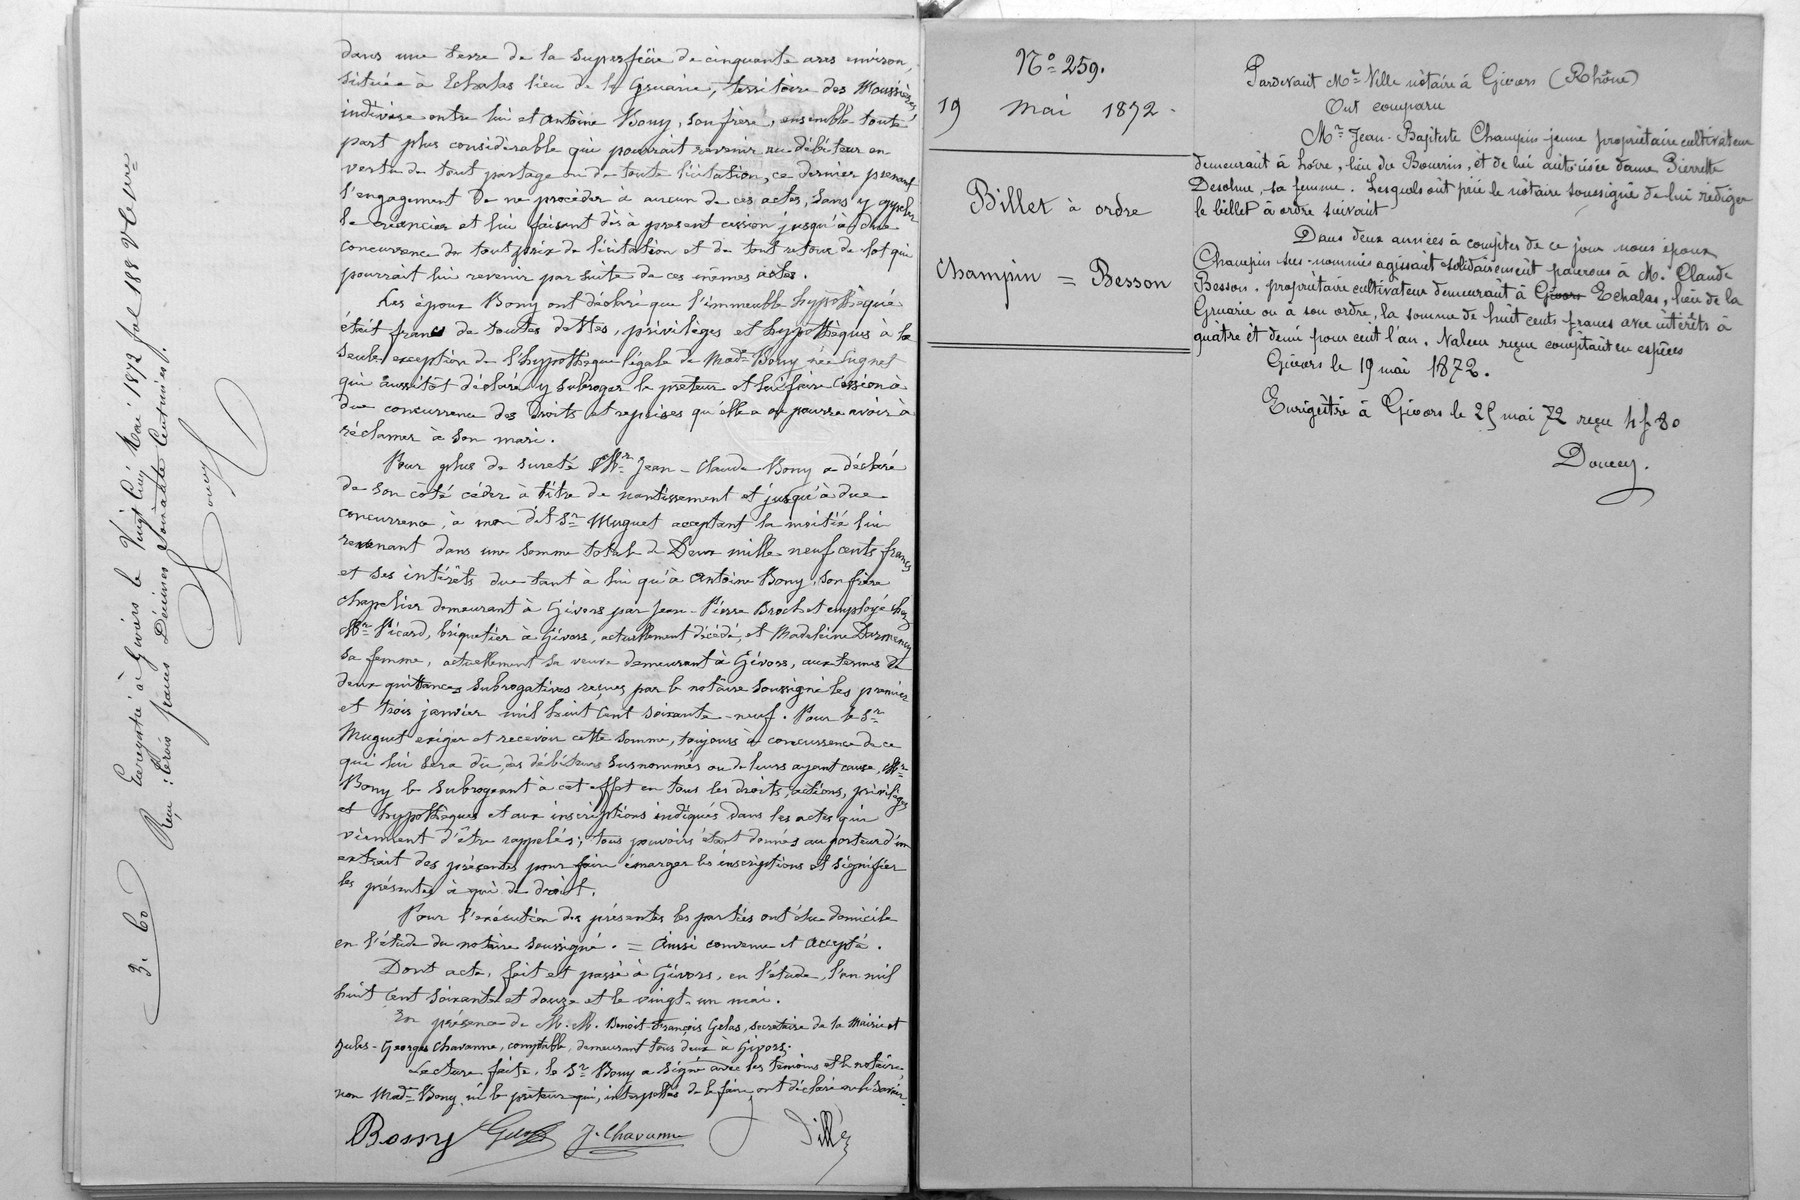 dans une terre de la superficie de cinquante ares environ,
située à Echalas lieu de la Gruarie, territoire des Moussières
indivise entre lui et Antoine Bony, son frère, ensemble toute
part plus considérable qui pourrait revenir au débiteur en
vertu de tout partage ou de toute licitation, ce dernier prenant
l'engagement de ne procéder à aucun de ces actes, sans y appeler
le créancier et lui faisant dès à présent cession jusqu'à due
concurrence de tout prix de licitation et de tout retour de lot qui
pourrait lui revenir par suite de ces mêmes actes.
Les époux Bony ont déclaré que l'immeuble hypothéqué
était franc de toutes dettes, privilèges et hypothèques à la
seule exception de l'hypothèque légale de Mad.e Bony née
qui aussitôt déclare y subroger le prêteur et lui faire cession à
due concurrence des droits et reprises qu'elle a ou pourra avoir à
réclamer à son mari.
Pour plus de sureté Mr Jean-Claude Bony a déclaré
de son côté céder à titre de nantissement et jusqu'à due
concurrence, à mon dit Sr Muguet acceptant la moitié lui
revenant dans une somme totale de Deux mille neuf cents francs
et ses intérêts due tant à lui qu'à Antoine Bony, son frère
chapelier demeurant à Givors par Jean-Pierre Brochet employé chez
Mr Picard, briquetier à Givors, actuellement décédé, et Madeleine Darmancy
sa femme, actuellement sa veuve demeurant à Givors, aux termes de
deux quittances subrogatives reçues par le notaire soussigné les premier
et trois janvier mil huit cent soixante-neuf. Pour le Sr
Muguet exiger et recevoir cette somme, toujours à concurrence de ce
qui lui sera dû, des débiteurs susnommés ou de leurs ayant cause, Mr
Bony le subrogeant à cet effet en tous les droits, actions, privilèges
et hypothèques et aux inscriptions indiqués dans les actes qui
viennent d'être rappelés; tous pouvoirs étant donnés au porteur d'un
extrait des présentes pour faire émarger les inscriptions et signifier
les présentes à qui de droit.
Pour l'exécution des présentes les parties ont élu domicile
en l'étude du notaire soussigné. = Ainsi convenu et accepté.
Dont acte, fait et passé à Givors, en l'étude, l'an mil
huit cent soixante et douze et le vingt-un mai.
En présence de M.M. Benoit-François Gelas, secrétaire de la Mairie et
Jules-Georges Chavanne, comptable, demeurant tous deux à Givors.
Lecture faite, le Sr Bony a signé avec les témoins et le notaire,
non Mad.e Bony, ni le prêteur qui, interpellés de le faire, ont déclaré ne le savoir.
Bossy Gelas J. Chavanne Ville
3. 60
Enregistré à Givors le Vingt Cinq Mai 1872 fol 188 Vo Cse
Reçu: trois francs Décimes Soixante Centimes.
Doucey
No 259.
19 mai 1872.
Billet à ordre
Champin = Besson
Pardevant Me Ville notaire à Givors (Rhône)
Ont comparu
Mr Jean-Baptiste Champin jeune propriétaire cultivateur
demeurant à , lieu du Bourrin, et de lui autorisée dame Pierrette
, sa femme. Lesquels ont prié le notaire soussigné de lui rédiger
le billet à ordre suivant
Dans deux années à compter de ce jour nous époux
Champin sus-nommés agissant solidairement paierons à M. Claude
Besson, propriétaire cultivateur demeurant à Givors Echalas, lieu de la
Gruarie ou à son ordre, la somme de huit cents francs avec intérêts à
quatre et demi pour cent l'an. Valeur reçue comptant en espèces
Givors le 19 mai 1872.
Enrigistré à Givors le 25 mai 72 reçu 4f 80
Doucey.